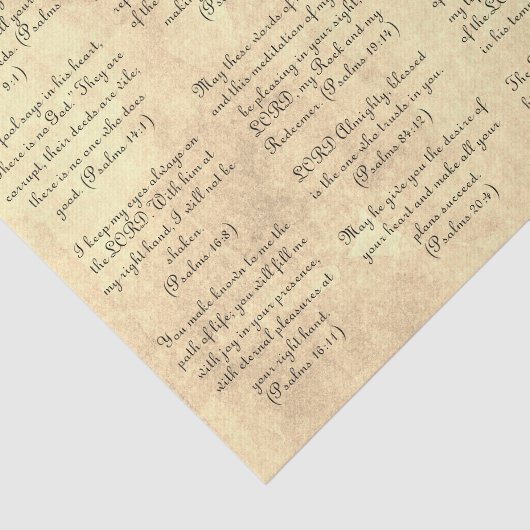 ll your
ds. (Psalms
9:1)
fool says in his heart,
here is no God." They are
corrupt, their deeds are vile;
there is no one who does
good. (Psalms 14:1)
I keep my eyes always on
the LORD. With him at
my right hand, I will not be
shaken.
(Psalms 16:8)
You make known to me the
path of life; you will fill me
with joy in your presence,
with eternal pleasures at
your right hand.
(Psalms 16:11)
rep
of the
making
(Psalms
May these words of
and this meditation of my
be pleasing in your sight,
LORD, my Rock and my
Redeemer. (Psalms 19:14)
LORD Almighty, blessed
is the one who trusts in you.
(Psalms 84:12)
May he give you the desire of
your heart and make all your
plans succeed.
(Psalms 20:4)
my li
of the LORD
in his temp
The